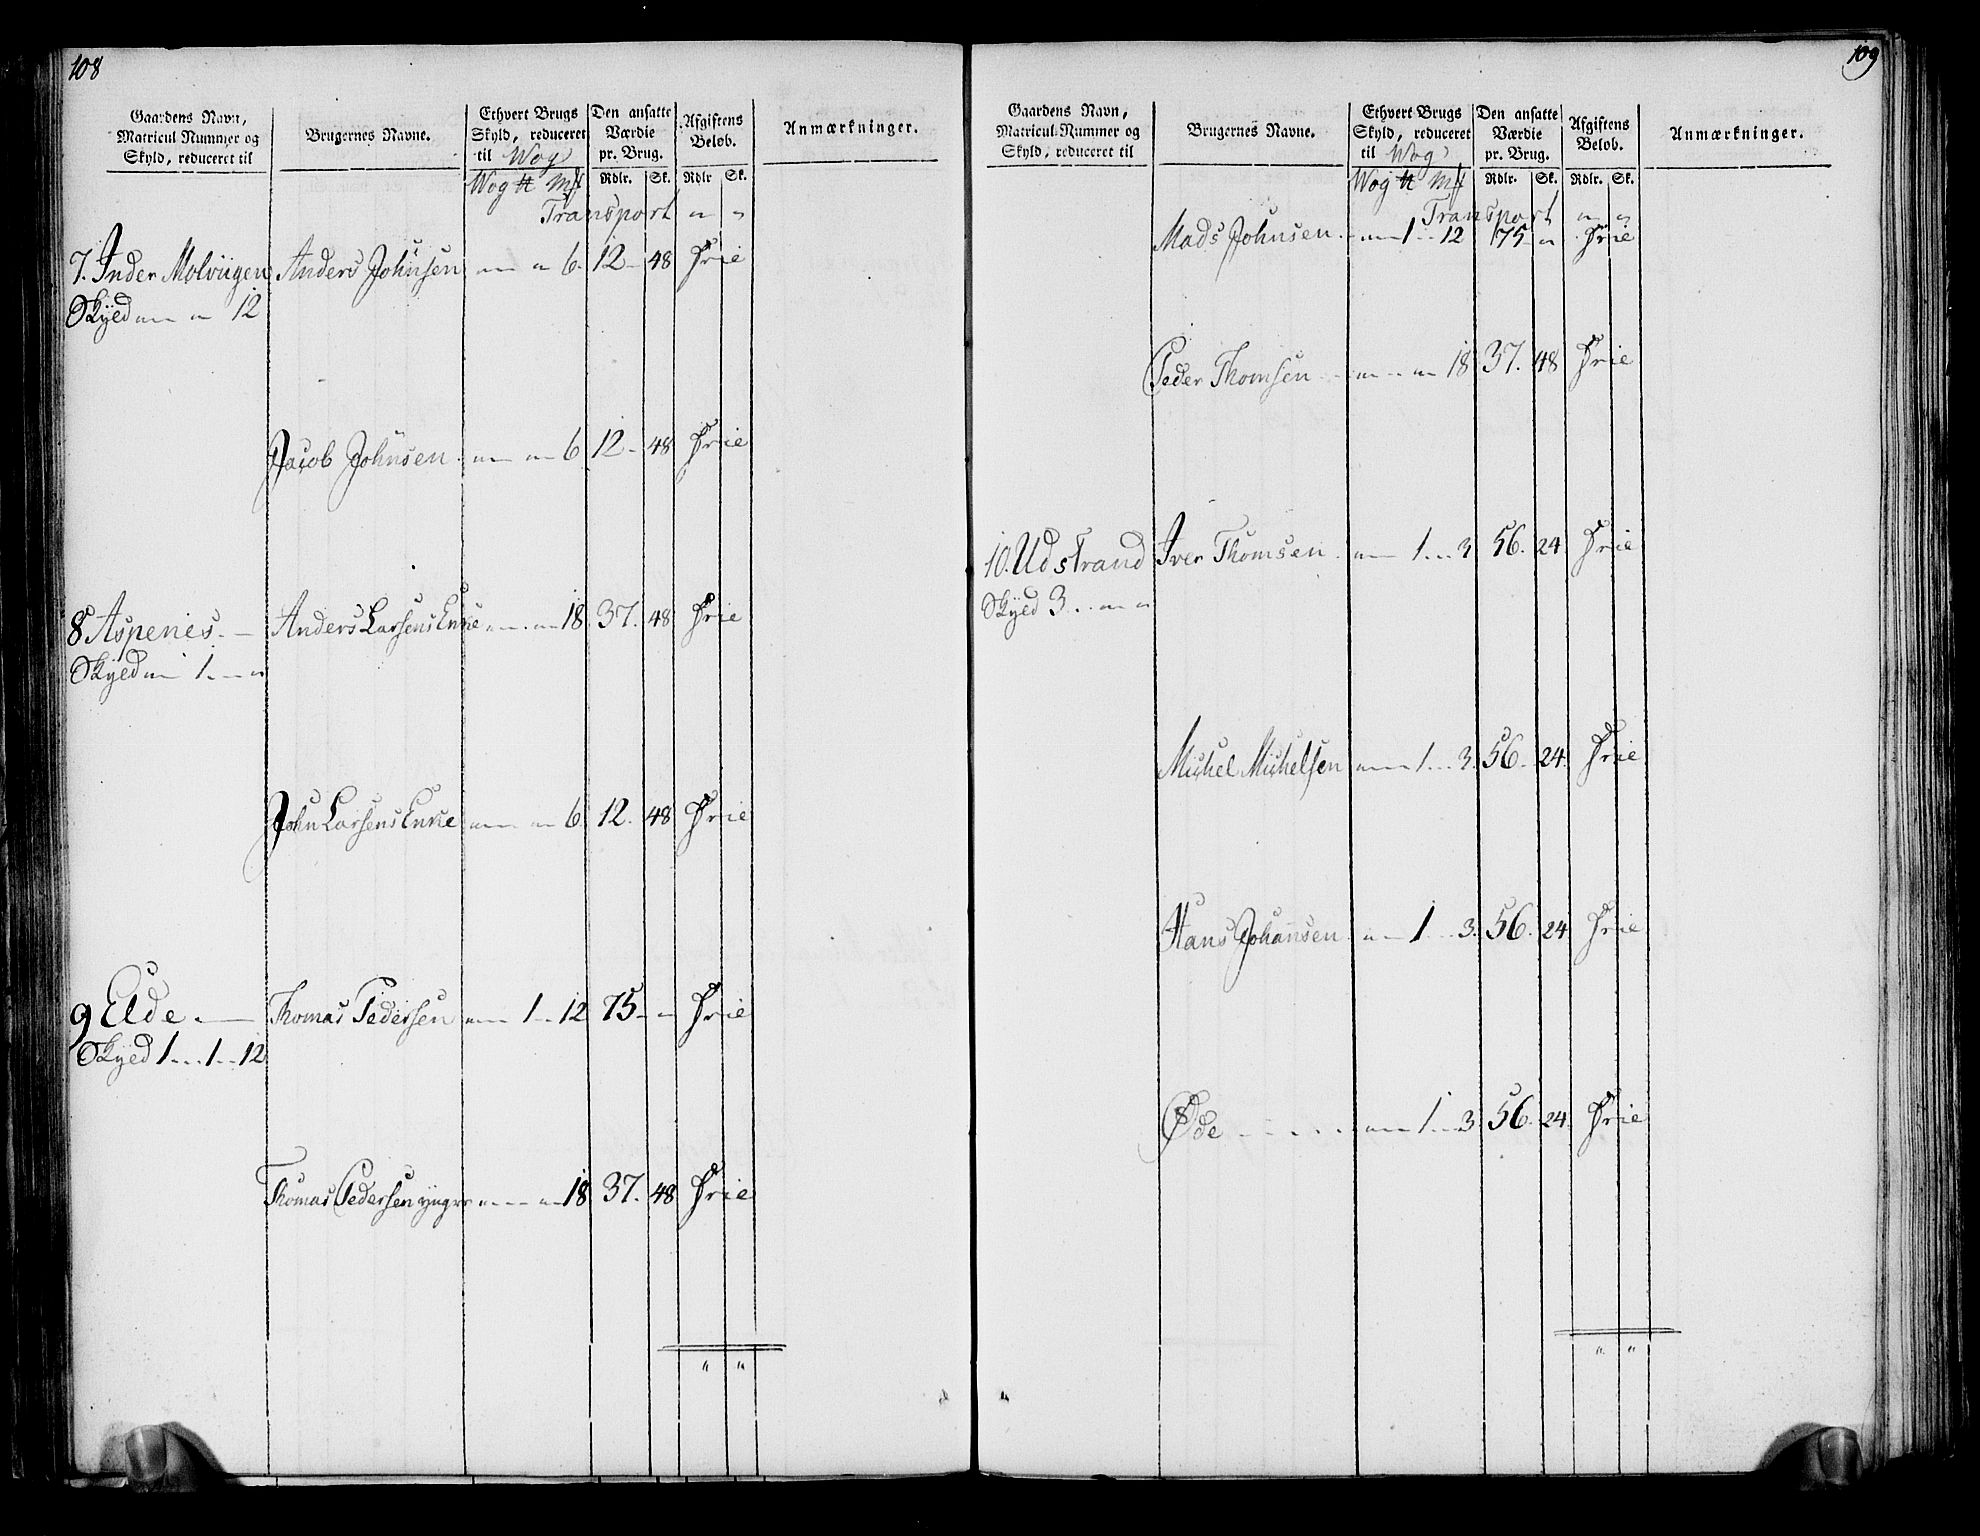 108
Gaardens Navn,
Matricul Nummer og
Skyld, reduceret til
Brugernes Navne.
Ethvert Brugs
Skyld, reduceret
til Wog
Den ansatte
Værdie
pr. Brug.
Afgiftens
Beløb.
Anmærkninger.
Wog ℔ Mk Rdlr. Sk. Rdlr Sk.
Transport " "
7. Inder Molvigen Anders Johnsen " " 6. 12 - 48 Frie
Skyld " " 12
Jacob Johnsen " " 6 12 - 48 Frie
8 Aspenes. - Anders Larsens Enke " " 18 37. 48 Frie
Skyld " 1 - "
John Larsens Enke " " 6 12. 48 Frie
9 Elde. - Thomas Pedersen " 1 - 12 75 - " Frie
Skyld 1 - 1 - 12
Thomas Pedersen yngre " " 18 37. 48 Frie
" "
109
Gaardens Navn,
Matricul-Nummer og
Skyld, reduceret til
Brugernes Navne.
Ethvert Brugs
Skyld, reduceret
til Wog
Den ansatte
Værdie
pr. Brug.
Afgiftens
Beløb.
Anmærkninger.
Wog ℔ Mk Rdlr. Sk. Rdlr. Sk.
Transport " "
Mads Johnsen - " 1 - 12 75 - " Frie
Peder Thomsen " " 18 37. 48 Frie
10. Udstrand Iver Thomsen. " 1 - 3 56. 24 Frie
Skyld 3 - " "
Michel Michelsen " 1 - 3. 56. 24. Frie
Hans Johansen " 1 - 3. 56. 24 Frie
Øde - - - - " 1 - 3 56. 24. Frie
" "